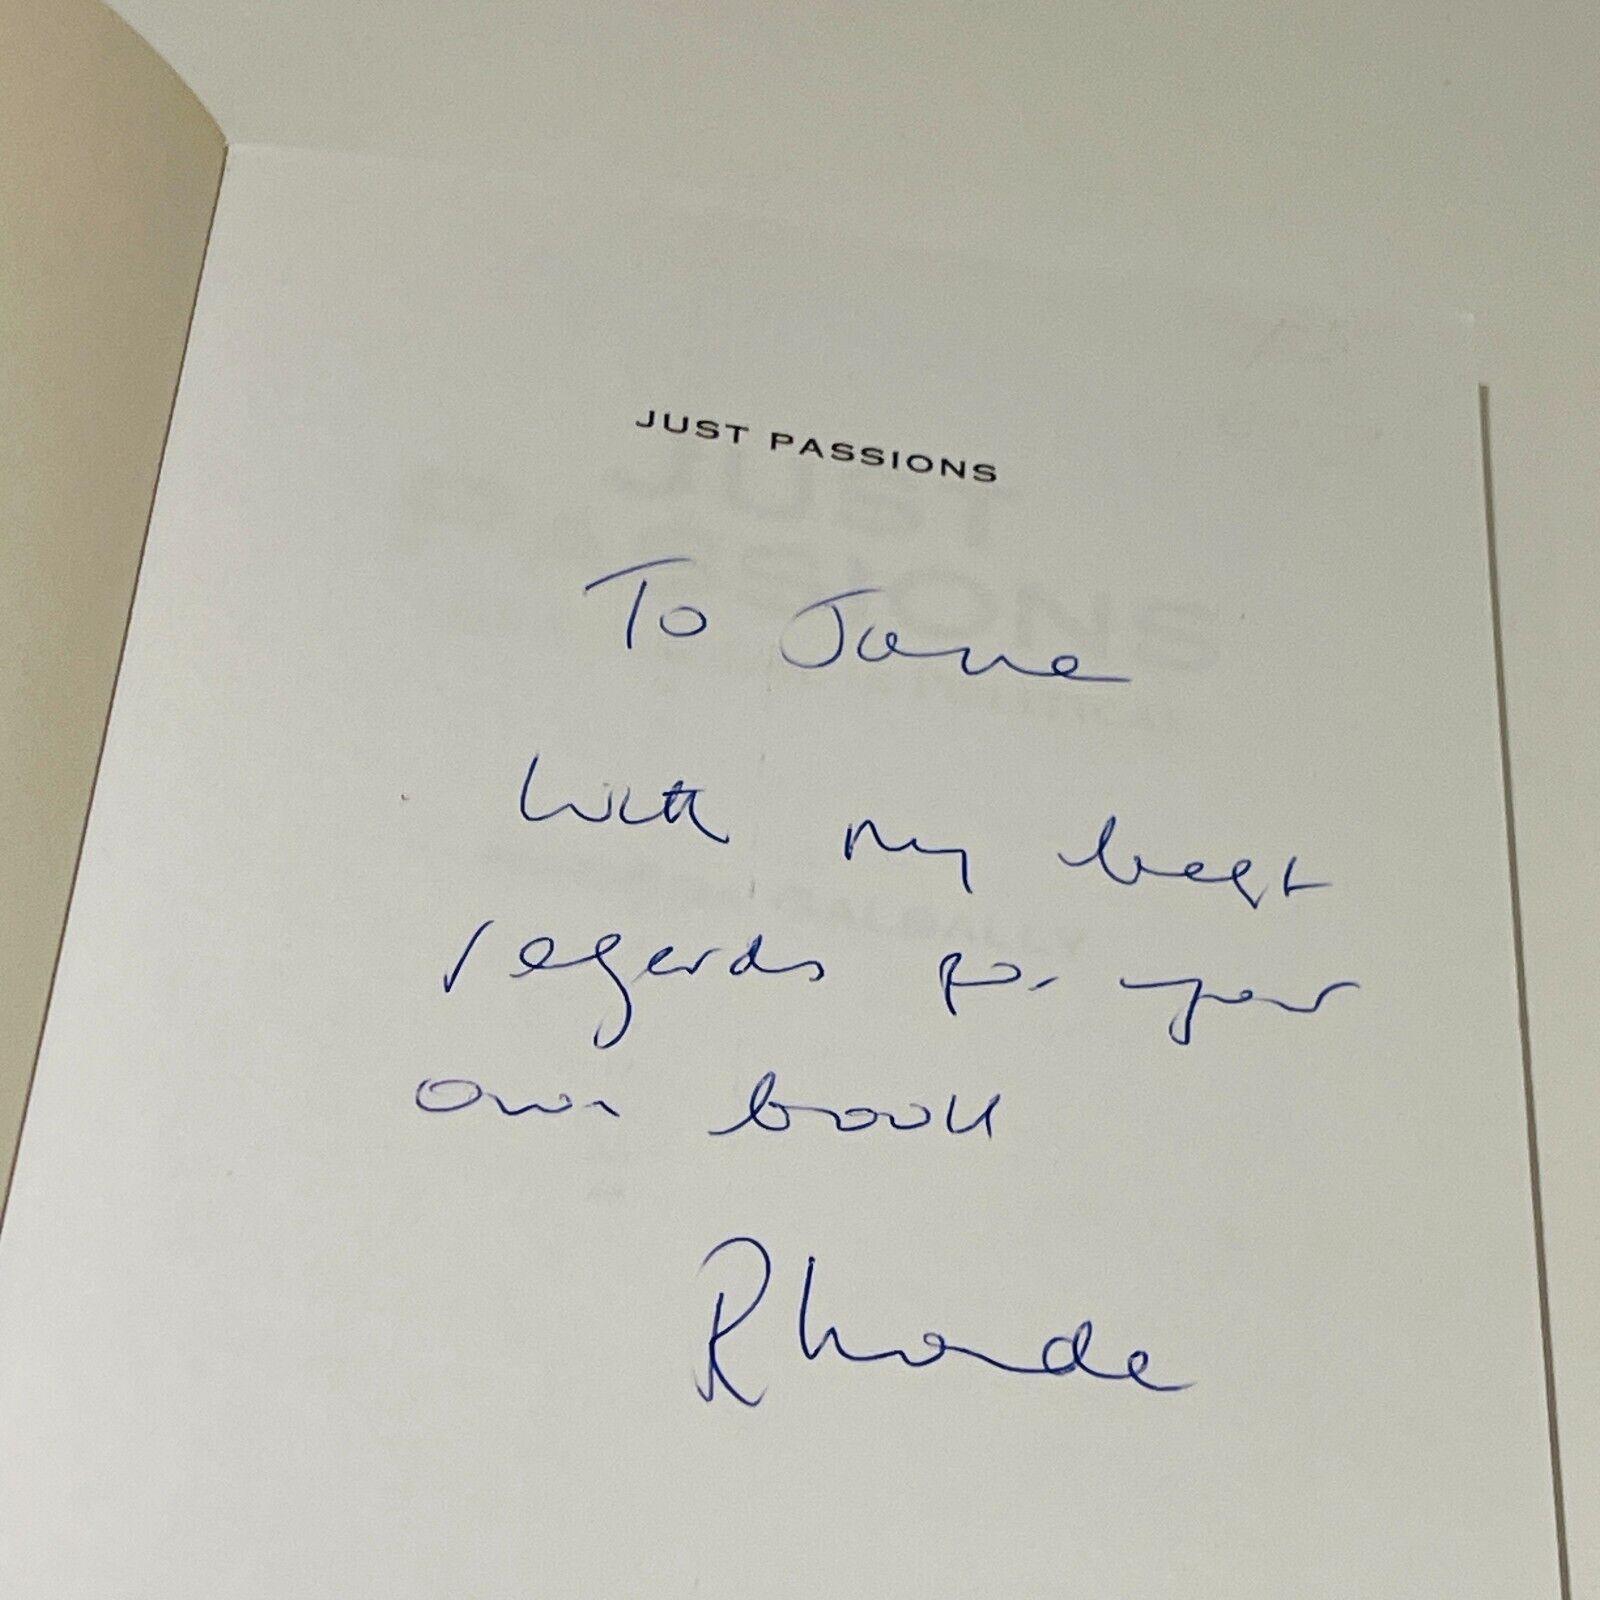 JUST PASSIONS
To Jane
With my best
regards for your
own book
Rhoda